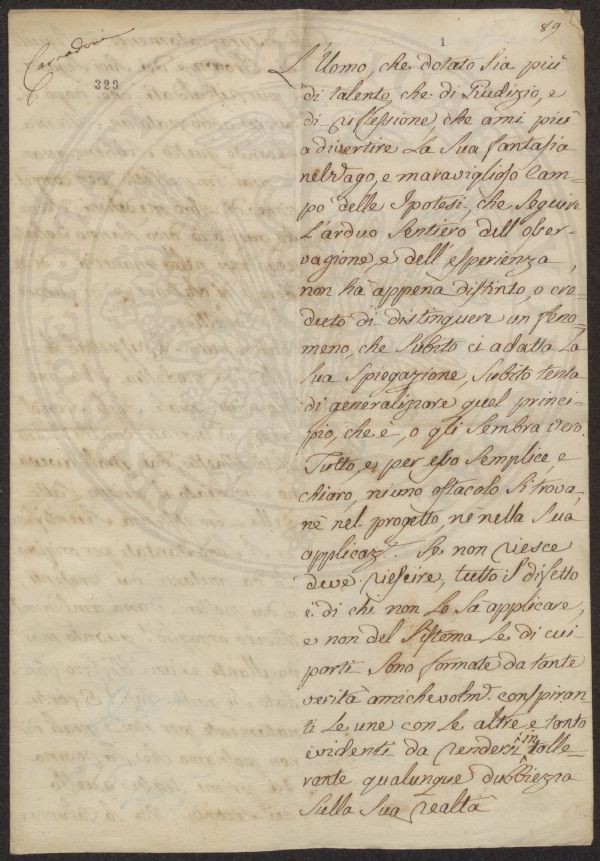 89
1
Carradori
329
L'Uomo, che dotato sia più
di talento, che di Giudizio, e
di riflessione che ami più
a divertire la sua fantasia
nel vago, e maraviglioso Cam-
po delle Ipotesi, che seguire
l'arduo sentiero dell'osser-
vazione, e dell'esperienza,
non hà appena distinto, o cre-
duto di distinguere un feno-
meno, che subito ci adatta la
sua spiegazione, subito tenta
di generalizzare quel princi-
pio, che è, o gli sembra vero.
Tutto, e per esso semplice, e
chiaro, niuno ostacolo si trova,
nè nel progetto, nè nella sua
applicaz.e Se non riesce
deve riescire, tutto il difetto
è di chi non lo sa applicare,
e non del Sistema le di cui
parti sono formate da tante
verità amichevolm.e cospiran
ti le une con le altre e tanto
evidenti da rendersi intolle-
rante qualunque dubbiezza
sulla sua realtà